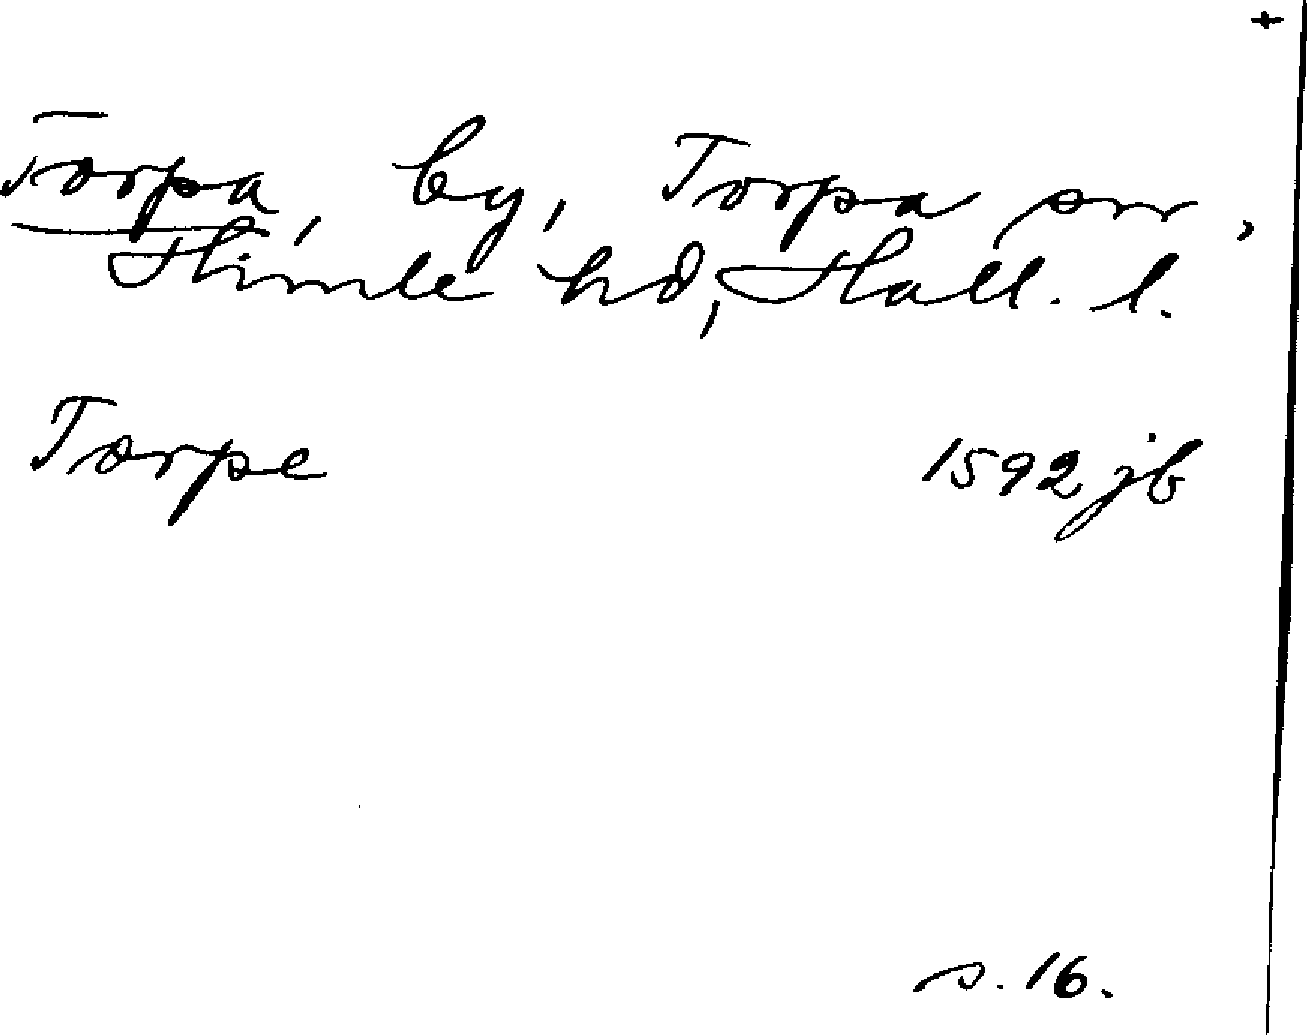 +
Torpa, by, Torpa sn,
Himle hd, Hall. l.
Torpe 1592 jb
s. 16.